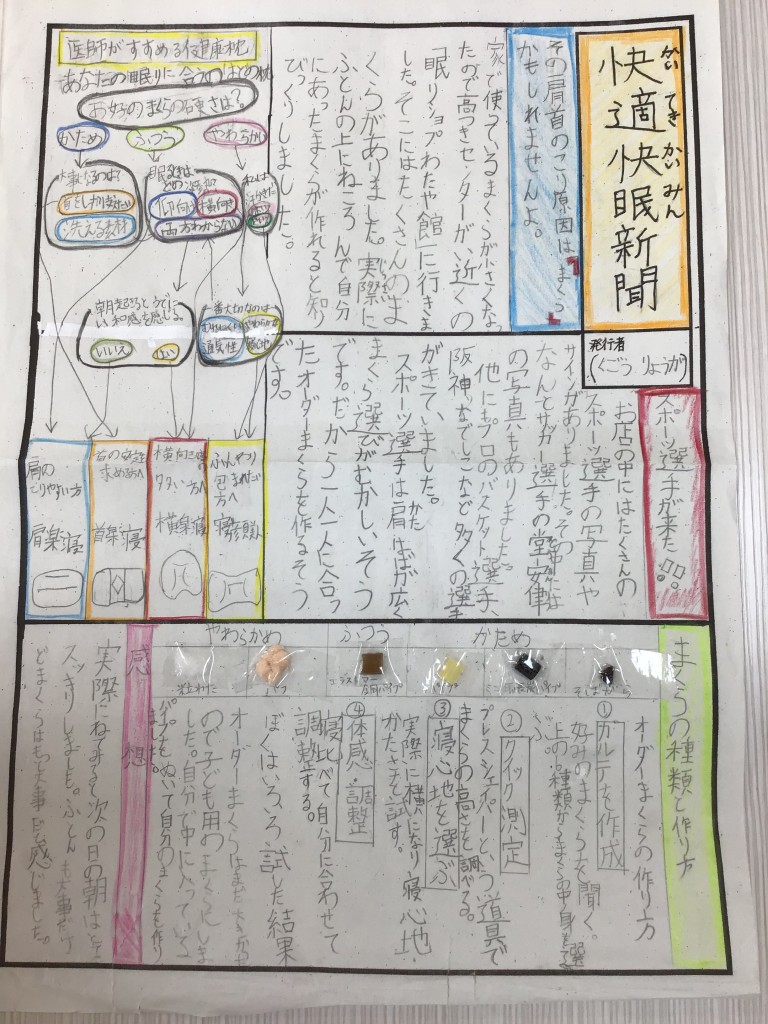 快適快眠新聞
かい てき かい みん
発行者
(くごう りょうが)
その肩首のこり原因は、まくら
かもしれませんよ。
家で使っているまくらが小さくなっ
たので高つきセンターが、近くの
「眠りショプわたや館」に行きま
した。そこにはたくさんのま
くらがありました。実際に
ふとんの上にねころんで自分
にあったまくらが作れると知り
びっくりしました。
医師がすすめる健康枕
あなたの眠りに合うのはどの枕
お好のまくらの硬さは?
かため
ふつう
やわらかめ
大事なのは?
首をしっかり支えたい
洗える素材
眠るときは
仰向け
横向き
両方わからない
朝起きるとうでに
い和感を感じる
いいえ
はい
一番大切なのは
通気性
肩の
こりやすい方
肩楽寝
首の安定
求める方へ
首楽寝
横向き寝
多い方へ
横楽寝
ふんわり
包まれたい
方へ
スポーツ選手が来た!!
お店の中にはたくさんの
スポーツ選手の写真や
サインがありました。その中には
なんとサッカー選手の堂安律
の写真もありました。
他にもプロのバスケット選手、
阪神、なでしこなど多くの選手
がきていました。
スポーツ選手は肩はばが広く
かた
まくら選びがむずかしいそう
です。だから一人一人に合っ
たオーダーまくらを作るそう
です。
まくらの種類と作り方
かため
ふつう
やわらかめ
そばがら
パイプ
エラストマー
パフ
粒わた
オーダーまくらの作り方
①カルテを作成
好みのまくらを聞く。
上の6種類からまくらの中身を選
ぶ。
②クイック測定
プレスシェポーという道具で
まくらの高さを調べる。
③寝心地を選ぶ
実際に横になり寝心地・
かたさを試す。
④体感・調整
寝比べて自分に合わせて
調整する。
ぼくはいろいろ試した結果
オーダーまくらはまだ大きかった
ので子ども用のまくらにしま
した。自分で中に入っている
パイプをぬいて自分のまくらを作り
ました。
感想
実際にねてみると次の日の朝はと
スッキリしました。ふとんも大事だけ
どまくらはもっと大事だと感じました。